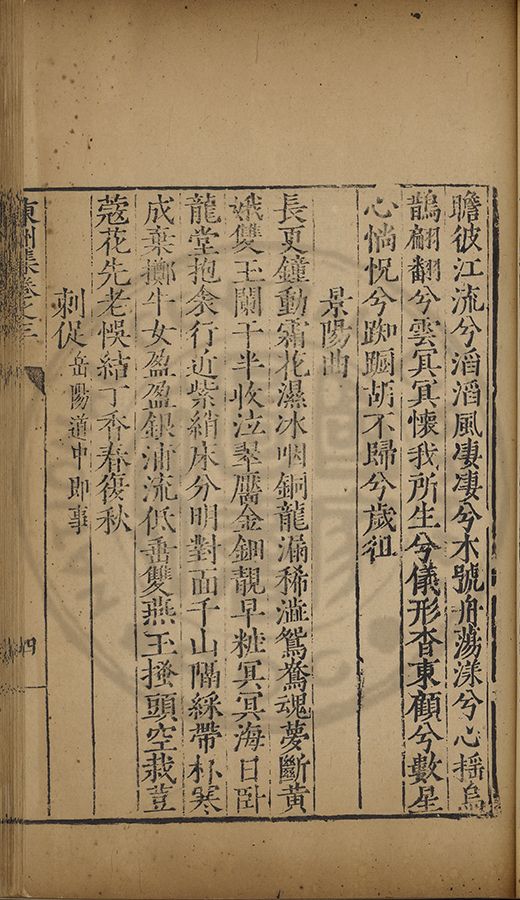 瞻彼江流兮滔滔風凄凄兮木號舟蕩漾兮心揺烏
鵲翩翻兮雲冥冥懷我所生兮儀形杳東顧兮數星
心惝怳兮踟蹰胡不歸兮歲徂
景陽曲
長更鐘動霜花濕冰咽銅龍漏稀澁鴛鴦魂夢斷黄
娥雙玉闌干半收泣翠靨金鈿靚早粧冥冥海日卧
龍堂抱衾行近紫綃床分明對面千山隔綵帶杯寒
成棄擲牛女盈盈銀浦流低垂雙燕玉搔頭空栽荳
蔻花先老悞結丁香春復秋
刺促岳陽道中即事
東洲集卷之三
四